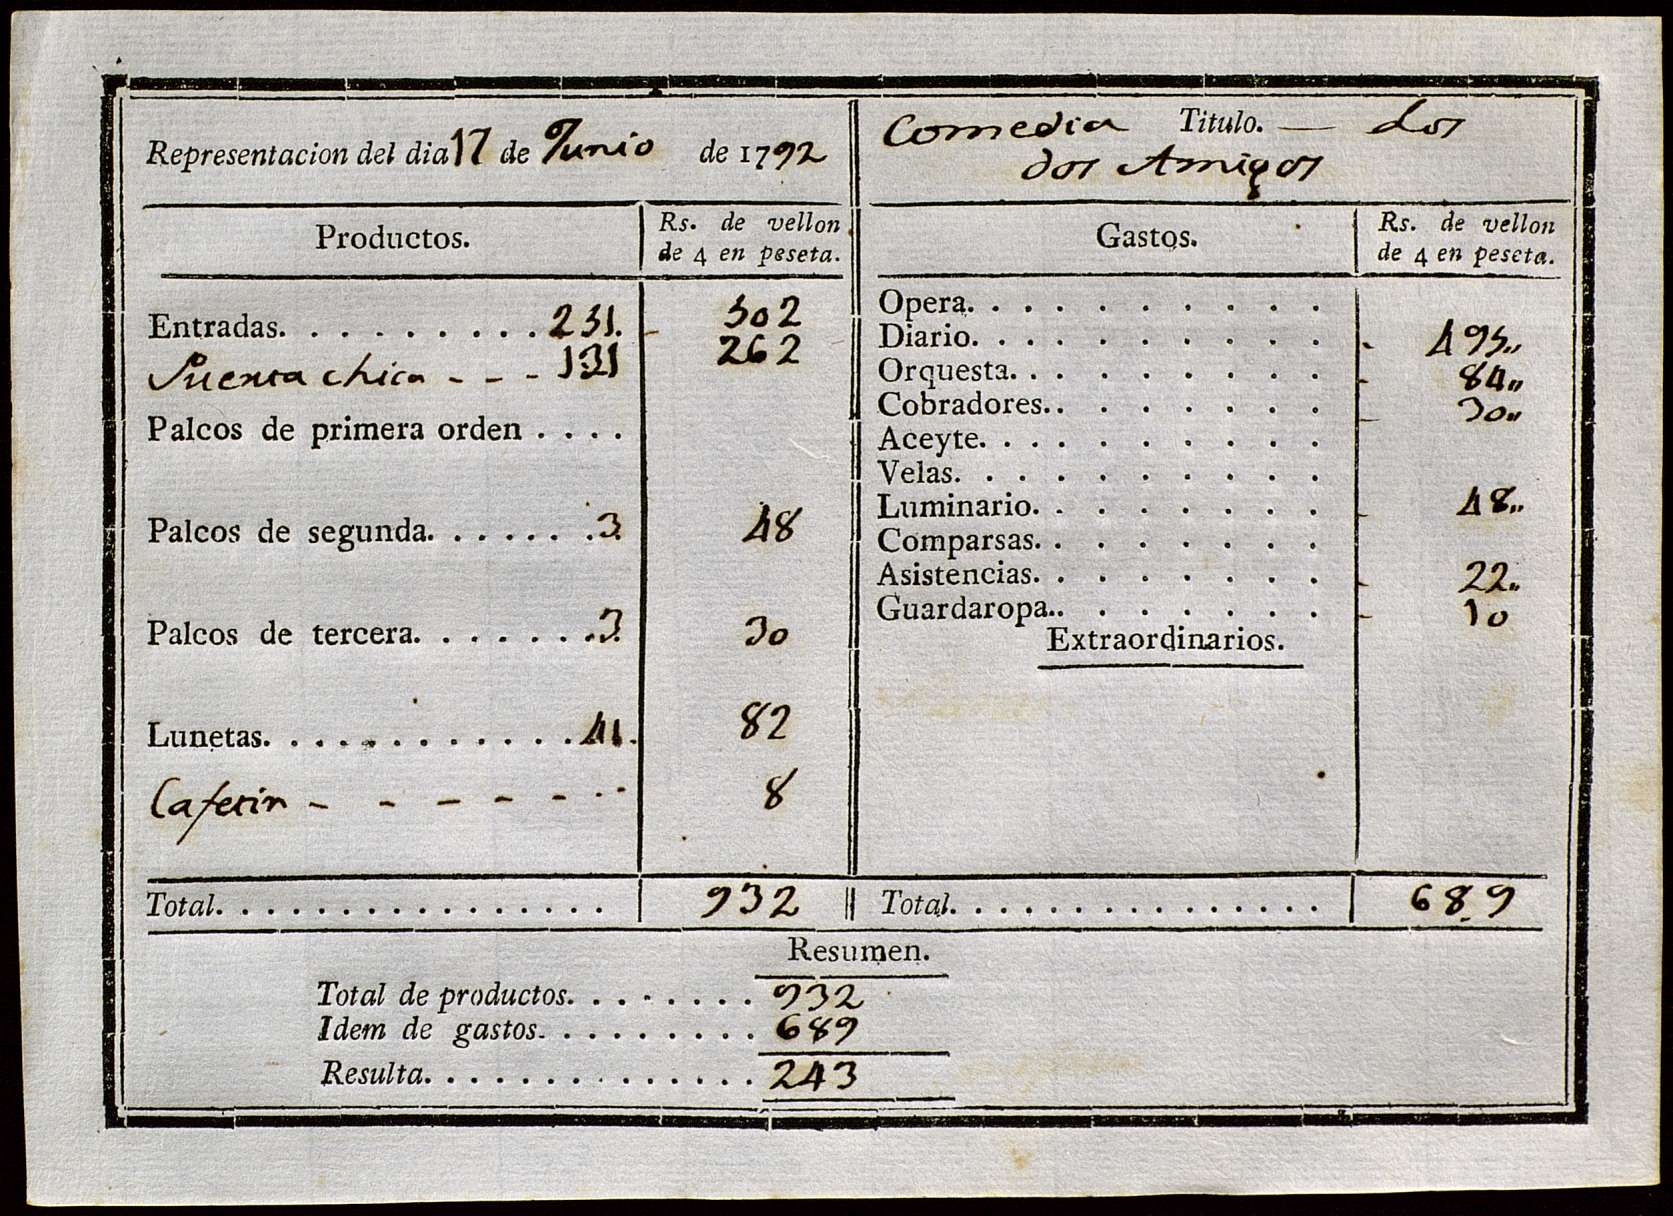 Representacion del dia 17 de Junio de 1792
Comedia Titulo. — Los
dos Amigos
Productos.
Rs. de vellon
de 4 en peseta.
Entradas. . . . . . . . . . 251. 502
Puerta chica - - - 131 262
Palcos de primera orden . . . .
Palcos de segunda. . . . . . . . 3. 48
Palcos de tercera. . . . . . . . 3. 30
Lunetas. . . . . . . . . . . . . 41. 82
Cafetin - - - - - - - 8
Total. . . . . . . . . . . . . . . . 932
Gastos.
Rs. de vellon
de 4 en peseta.
Opera. . . . . . . . . .
Diario. . . . . . . . . . - 495„
Orquesta. . . . . . . . . - 84„
Cobradores. . . . . . . . - 30„
Aceyte. . . . . . . . . .
Velas. . . . . . . . . .
Luminario. . . . . . . . - 48„
Comparsas. . . . . . . .
Asistencias. . . . . . . . - 22„
Guardaropa. . . . . . . . - 10
Extraordinarios.
Total. . . . . . . . . . . . . . . . 689
Resumen.
Total de productos. . . . . . . . . 932
Idem de gastos. . . . . . . . . . 689
Resulta. . . . . . . . . . . . . . . 243